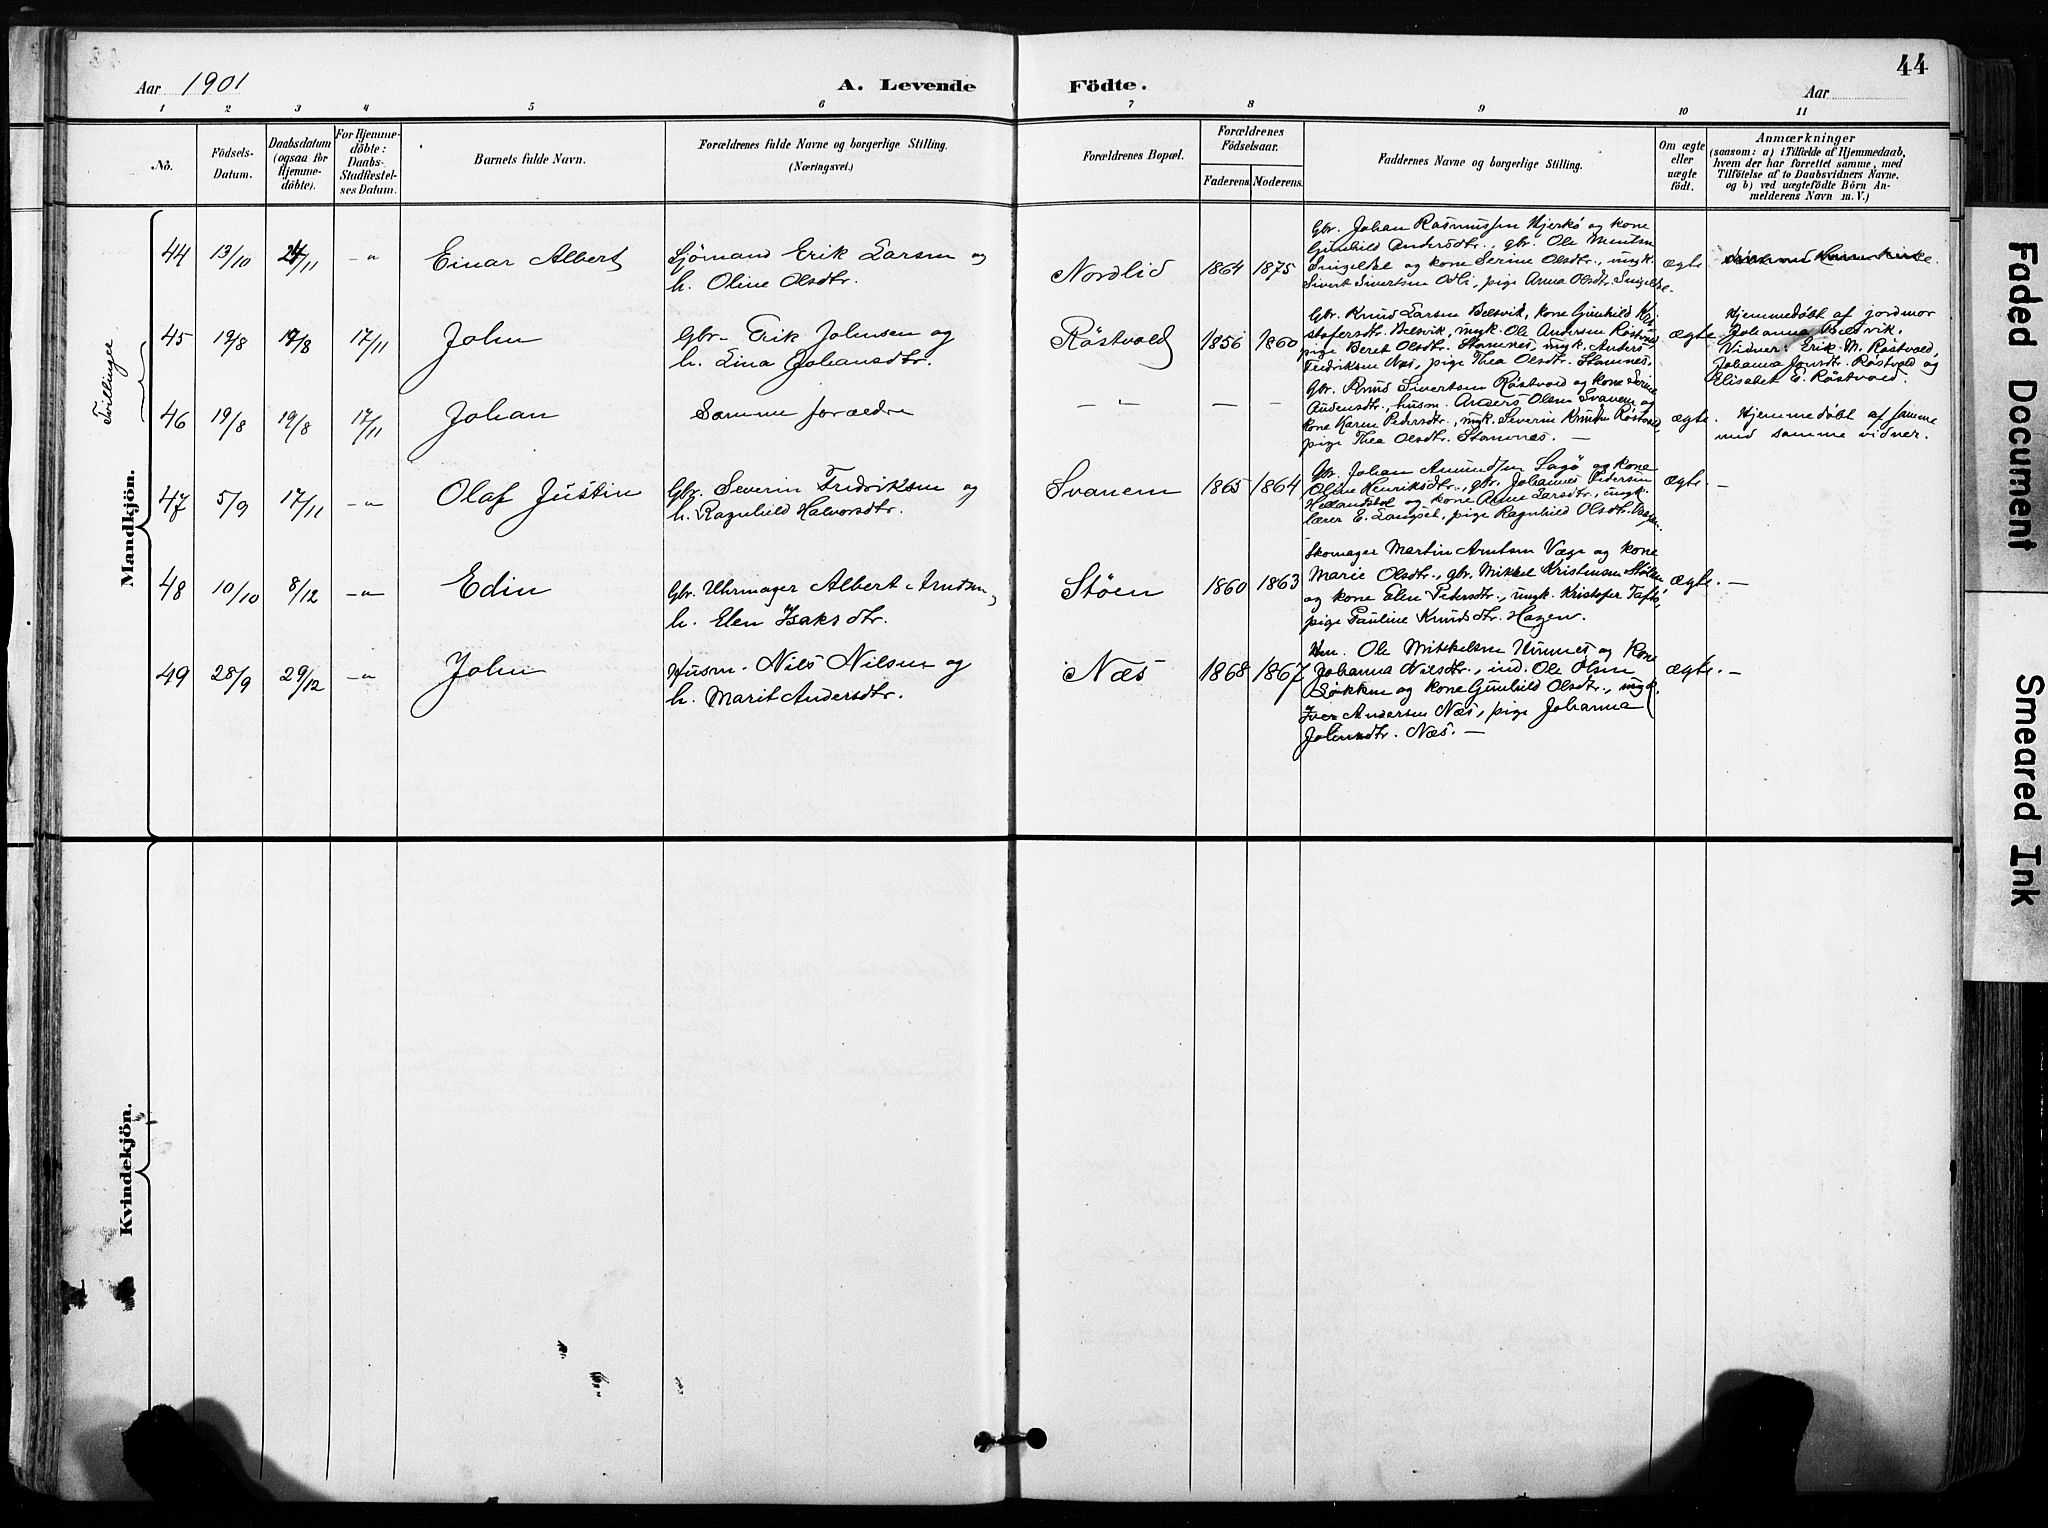 44
Aar 1901
A. Levende Födte.
Aar
1 2 3 4 5 6 7 8 9 10 11
No.
Födsels-
Datum.
Daabsdatum
(ogsaa for
Hjemme-
döbte).
For Hjemme-
döbte:
Daabs-
Stadfæstel-
ses Datum.
Barnets fulde Navn.
Forældrenes fulde Navne og borgerlige Stilling.
(Næringsvei.)
Forældrenes Bopæl.
Forældrenes
Födselsaar.
Faderens. Moderens.
Faddernes Navne og borgerlige Stilling.
Om ægte
eller
uægte
födt.
Anmærkninger
(saasom: a) i Tilfælde af Hjemmedaab,
hvem der har forrettet samme, med
Tilföielse af to Daabsvidners Navne,
og b) ved uægtefödte Börn An-
melderens Navn m. V.)
Mandkjön.
Tvillinger
44 13/10 24/11 -"- Einar Albert
Sjömand Erik Larsen og
h. Oline Olsdtr.
Nordlid 1864 1875
Gbr. Johan Rasmussen Hjerkö og kone
Gunhild Andersdtr., gbr. Ole
og kone Serine Olsdtr., ungk.
Sivert Sivertsen Odli, pige Anna Olsdtr.
ægte.
45 19/8 19/8 17/11 John
Gbr. Erik Johnsen og
h. Lina Johansdtr.
Röstvold 1856 1860
Gbr. Knud Larsen Belsvik, kone Gunhild Kri-
stofersdtr. Belsvik, ungk. Ole Andersen Röstvold,
pige Beret Olsdtr. Stamnes, ungk. Anders
Fredriksen Næs, pige Thea Olsdtr. Stamnes.
ægte.
Hjemmedöbt af jordmor
Johanna Belsvik.
Vidner: Erik M. Röstvold,
Johanna Jonsdtr. Röstvold og
Elisabet E. Röstvold.
46 19/8 19/8 17/11 Johan
Samme forældre
- " - - -
Gbr. Knud Sivertsen Röstvold og kone Serine
Andersdtr., husm. Anders Olsen Svanem og
kone Karen Pedersdtr., ungk. Severin Knudsen Röstvold,
pige Thea Olsdtr. Stamnes. -
ægte.
Hjemmedöbt af samme
med samme vidner.
47 5/9 17/11 -"- Olaf Justin
Gbr. Severin Fredriksen og
h. Ragnhild Halvorsdtr.
Svanem 1865 1864
Gbr. Johan Amundsen Sagö og kone
Oline Henriksdtr., gbr. Johannes Pedersen
og kone Anne Larsdtr., ungk.
lærer E. Langset, pige Ragnhild Olsdtr.
ægte. -
48 10/10 8/12 -"- Edin
Gbr. Uhrmager Albert Arntsen,
h. Elen Isaksdtr.
Stöen 1860 1863
Skomager Martin Arntsen Vage og kone
Marie Olsdtr., gbr. Mikkel Kristensen Stölen
og kone Elen Pedersdtr., ungk. Kristofer Taftö,
pige Pauline Knudsdtr. Hagen.
ægte. -
49 28/9 29/12 -"- John
Husm. Nils Nilsen og
h. Marit Andersdtr.
Næs 1868 1867
Hm. Ole Mikkelsen Himnes og kone
Johanna Nilsdtr., ind. Ole Olsen
Løkken og kone Gunhild Olsdtr., ungk.
Iver Andersen Næs, pige Johanna
Johnsdtr. Næs. -
ægte. -
Kvindekjön.
Faded Document
Smeared Ink